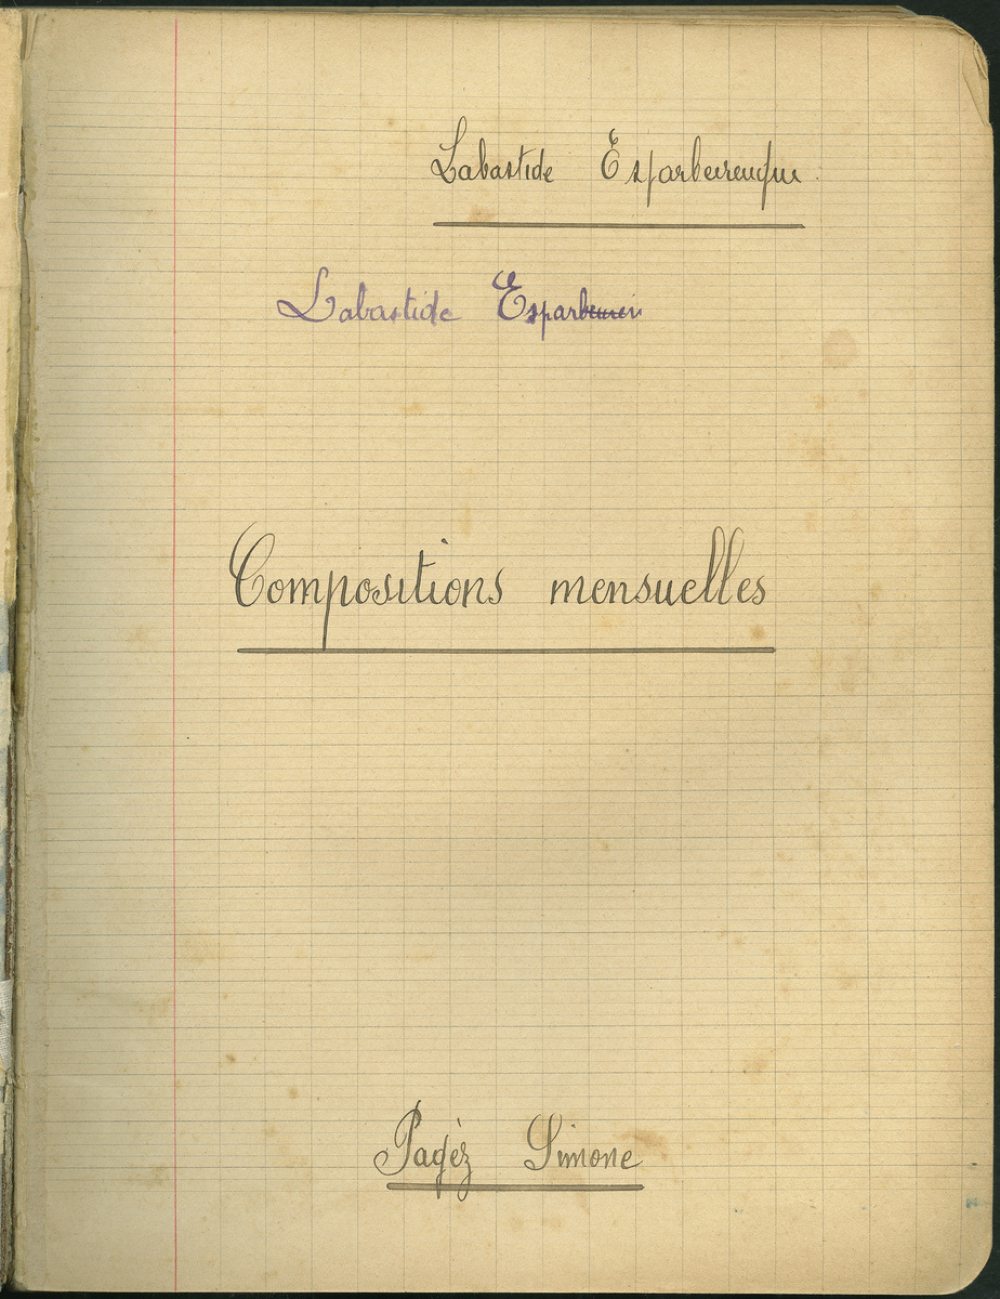 Labastide Esparbeirenque
Labastide Esparb
Compositions mensuelles
Pagèz Simone